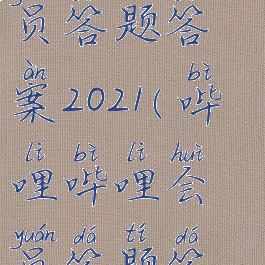 员答题答
àn bì
案2021(哔
lī bì lī huì
哩哔哩会
yuán dá tí dá
员答题答